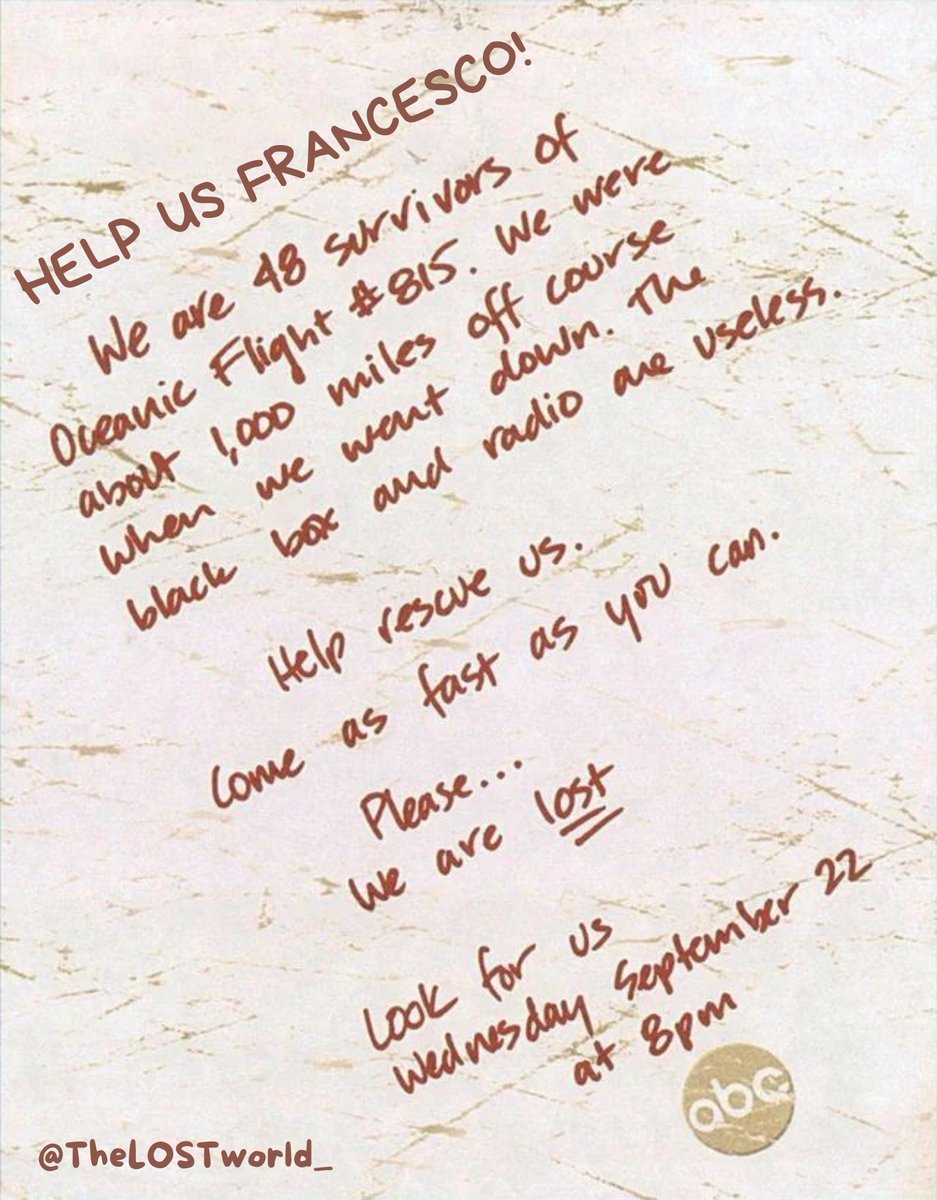 HELP US FRANCESCO!
We are 48 survivors of
Oceanic Flight #815. We were
about 1,000 miles off course
when we went down. The
black box and radio are useless.
Help rescue us.
Come as fast as you can.
Please...
We are lost
Look for us
Wednesday September 22
at 8pm
abc
@TheLOSTworld_